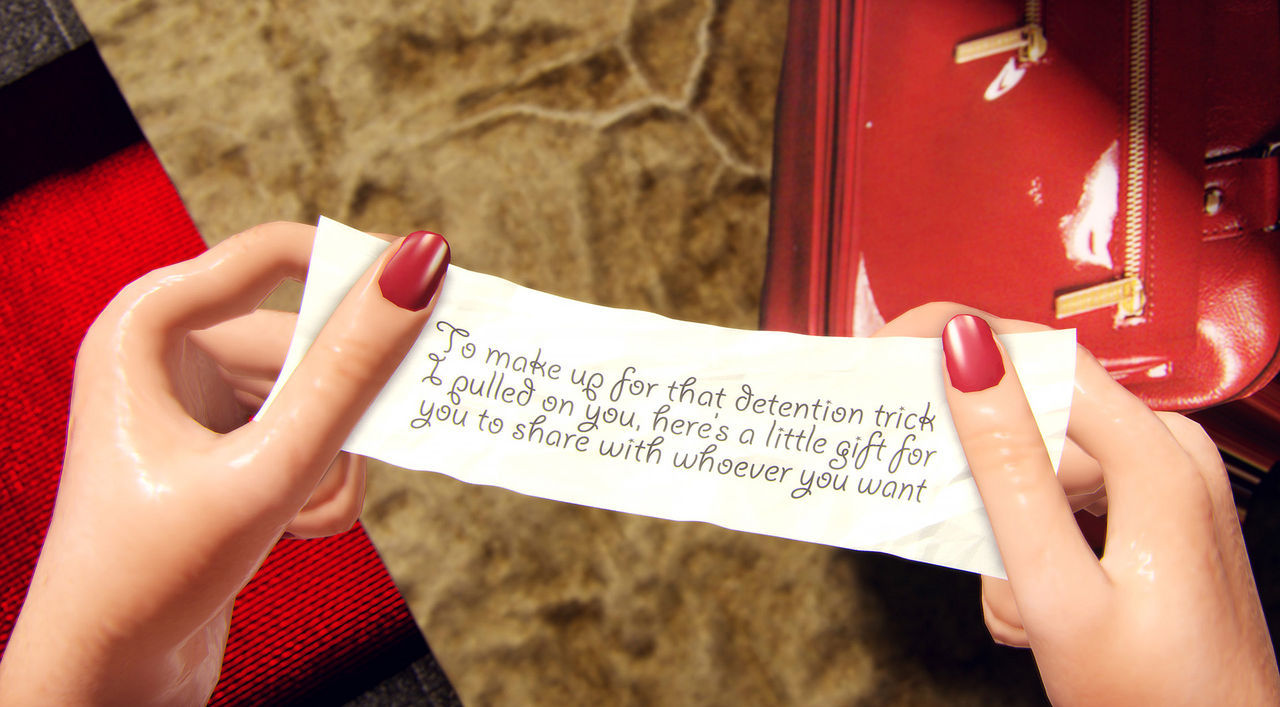 To make up for that detention trick
I pulled on you, here's a little gift for
you to share with whoever you want